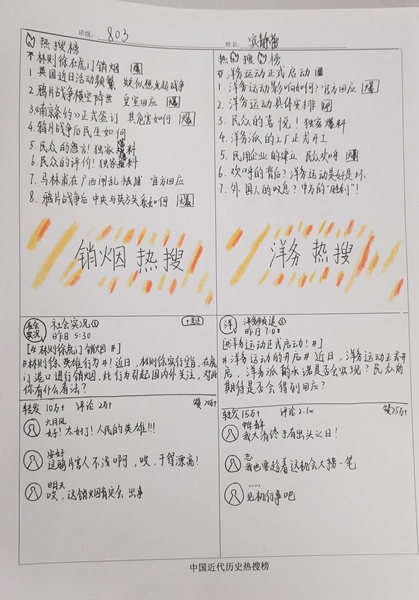 班级: 803
姓名:
热搜榜
林则徐在虎门销烟 爆
1. 英国近日活动频繁 疑似想发起战争
2. 鸦片战争横空降世 皇室回应 爆
3.《南京条约》正式签订 其危害如何 爆
4. 鸦片战争后民生如何
5. 民众的怨言! 独家爆料
6. 民众的评价! 独家爆料
7. 马林甫在广西闹乱被捕 官方回应
8. 鸦片战争后中央与英方关系如何 爆
销烟 热搜
热搜榜
洋务运动正式启动
1. 洋务运动影响如何? 官方回应 爆
2. 洋务运动具体安排
3. 民众的喜悦! 独家爆料
4. 洋务派的工厂正式开工
5. 民用企业的建立 民众欢呼 爆
6. 欢呼的背后? 洋务运动是好是坏
7. 外国人的叹息? 中方的"胜利"!
洋务 热搜
社会实况
社会实况
昨日 5:30
+关注
[# 林则徐虎门销烟 #]
#林则徐英雄行为#! 近日, 林则徐实行望, 在虎
门港口进行销烟, 此行为引起国内外关注, 对此
你有什么看法?
转发 10万+ 评论 2万+ 赞
六月风
好! 太好了! 人民的英雄!!!
安好
这鸦片害人不浅啊, 唉, 干得漂亮!
明天
哎, 这销烟固有定会出事
洋
洋务频道
昨日 7:09
[#洋务运动正式启动! #]
#洋务运动的开启# 近日, 洋务运动正式开
启, 洋务派的水涨是否会实现? 民众的
期待是否会得到回应?
转发 15万+ 评论 2.1w 赞 25万+
我大清终于有出头之日!
志
我也要趁着这机会大捞一笔
见机行事吧
中国近代历史热搜榜